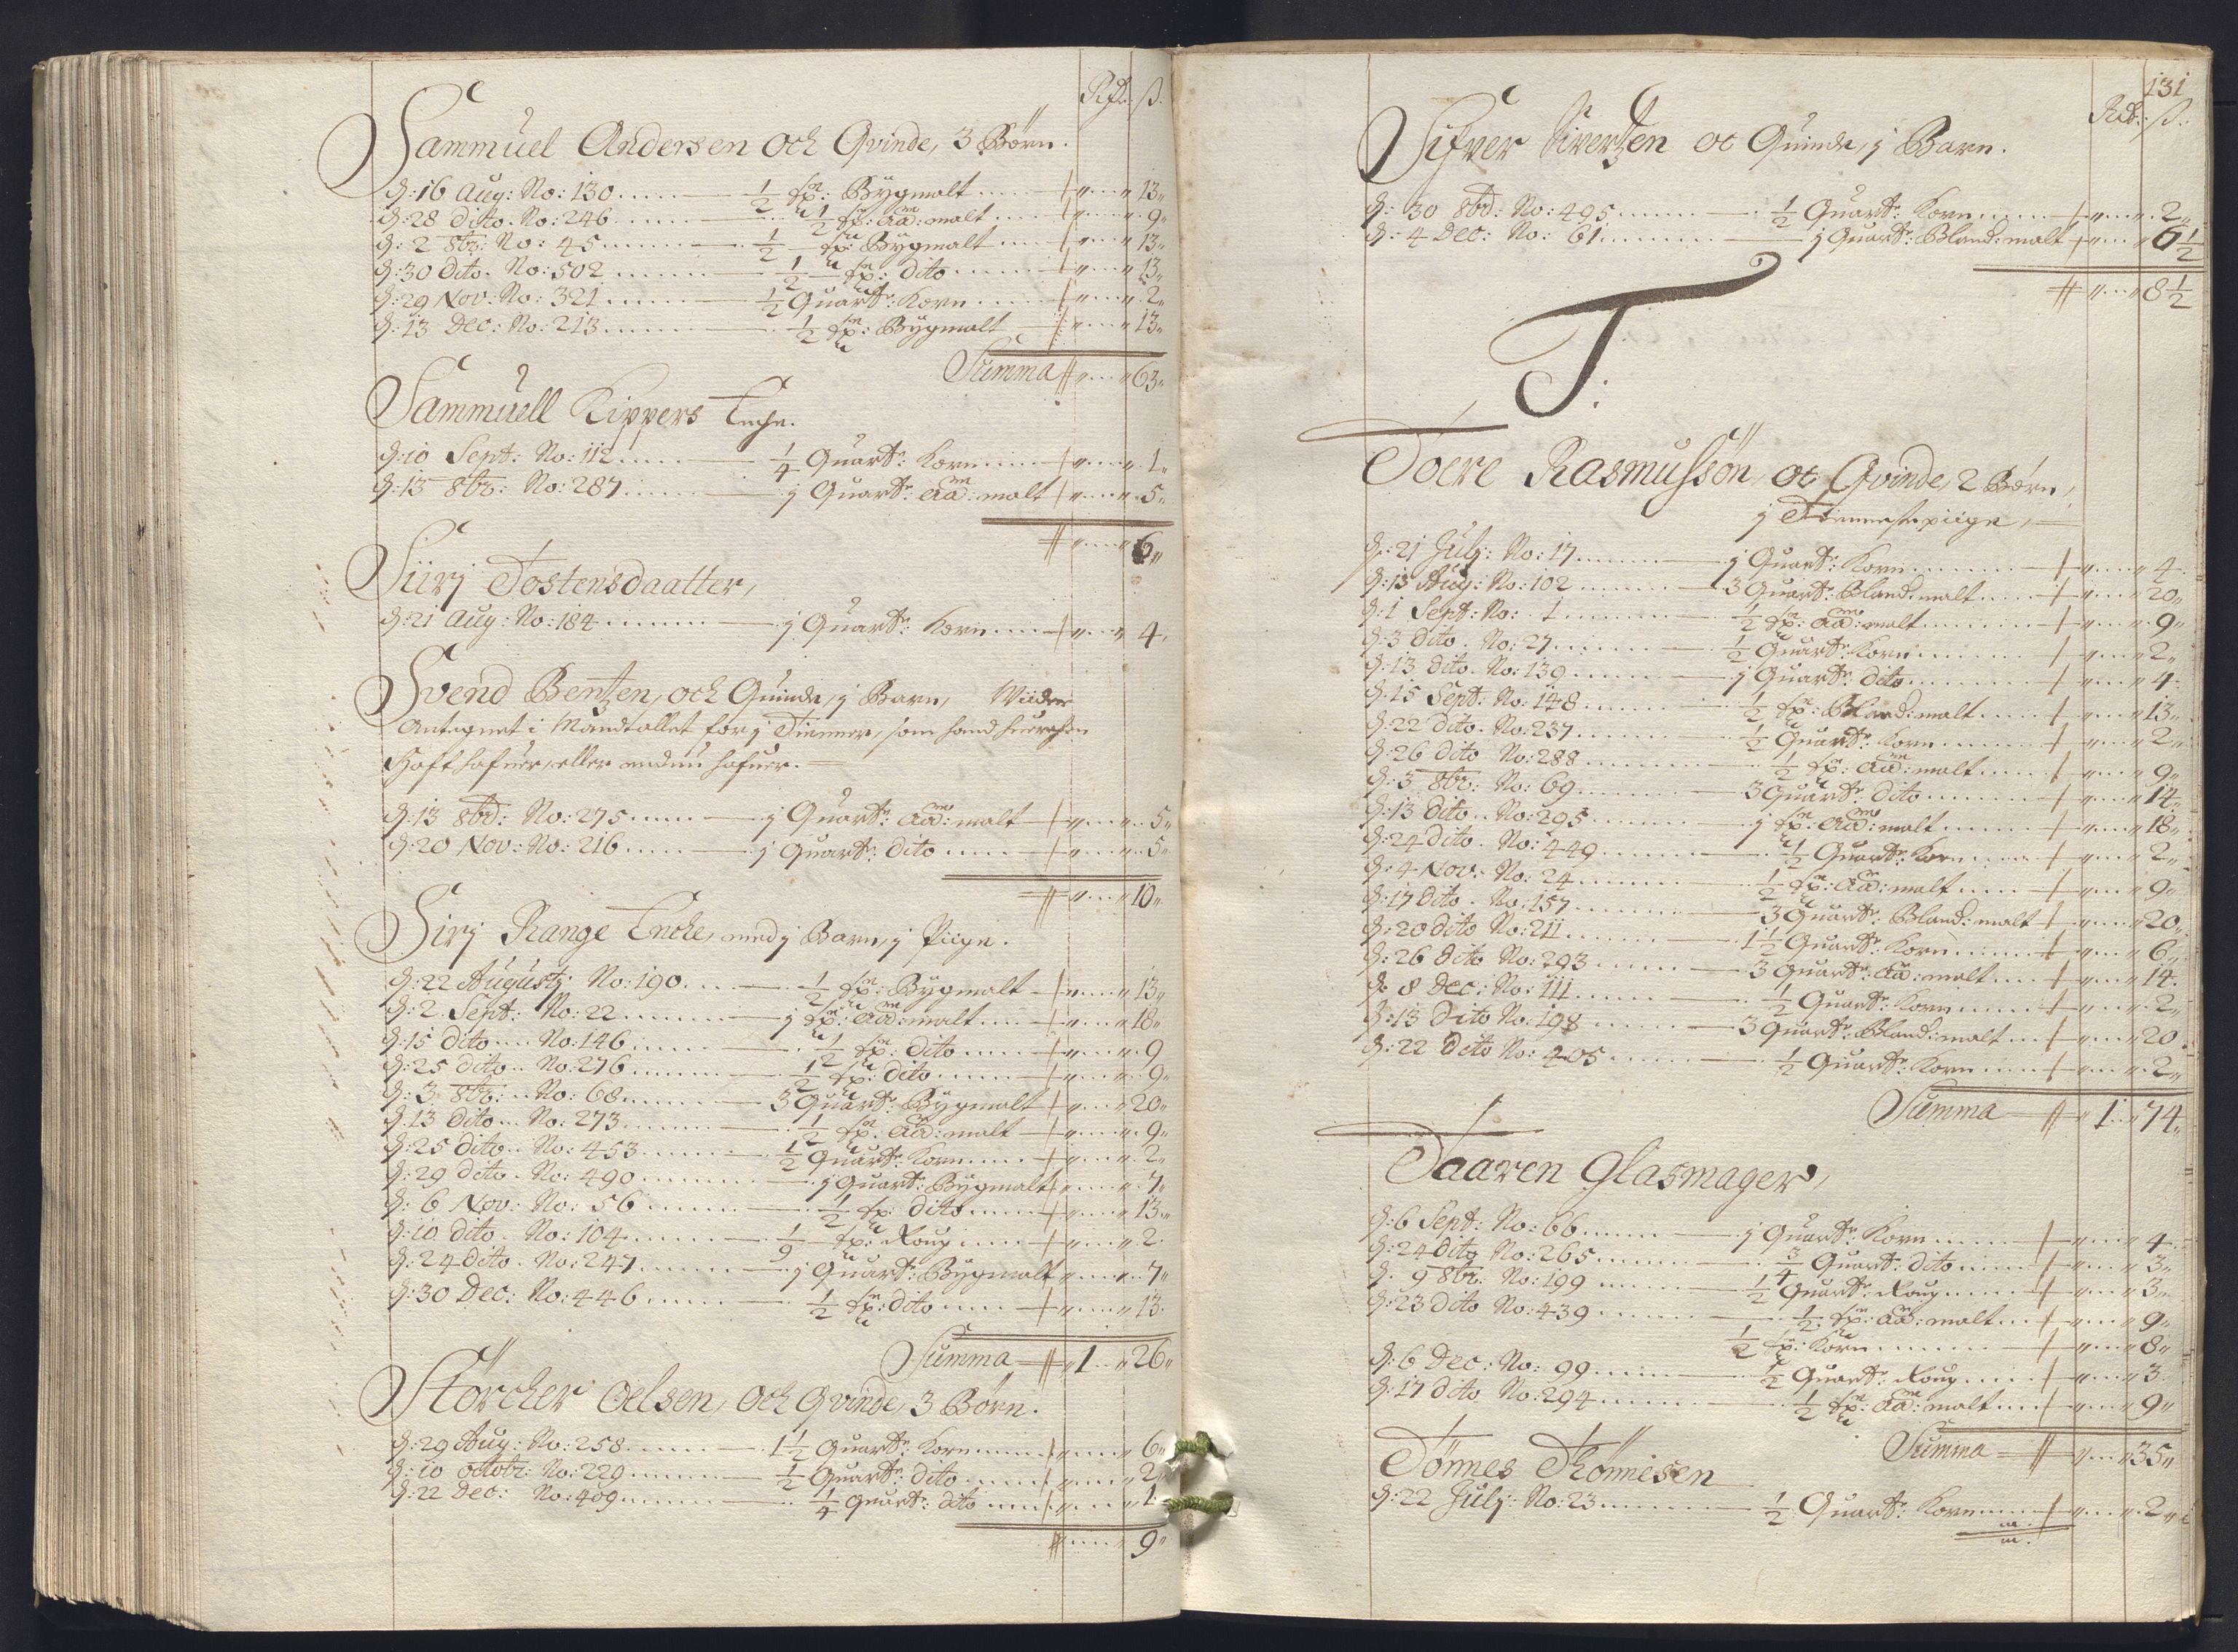 Rdr: ß.
Sammuel Andersen och Qvinde, 3 Børn.
d: 16 Aug: No: 130 ...... ½ tn: Bÿgmalt ...... 13
d: 28 dito. No: 246 ...... ½ tn: aad: malt ...... 9
d: 2 8br: No: 45 ...... ½ tn: Bÿgmalt ...... 13
d: 30 dito. No: 502 ...... ½ tn: dito ...... 13
d: 29 Nov: No: 321 ...... ½ Quart: Korn ...... 2
d: 13 Dec: No: 213 ...... ½ tn: Bÿgmalt ...... 13
Summa 63
Sammuell Kippers Enche.
d: 10 Sept: No: 112 ...... ¼ Quart: Korn ...... 1
d: 13 8br: No: 287 ...... j Quart: aad: malt ...... 5
6
Siirj Tostensdaatter,
d: 21 Aug: No: 184 ...... j Quart: Korn ...... 4
Svend Bentzen, och Quinde, j Barn, Wiider
Antegnet i Mandtallet for j Tienner, som hand huercken
Hafft hafuer, eller endnu hafuer.
d: 13 8br: No: 275 ...... j Quart: aad: malt ...... 5
d: 20 Nov: No: 216 ...... j Quart: dito ...... 5
10
Sirj Range Encke, med j Barn, j Piige.
d: 22 Augustj No: 190 ...... ½ tn: Bÿgmalt ...... 13
d: 2 Sept: No: 22 ...... j tn: aad: malt ...... 18
d: 15 dito No: 146 ...... ½ tn: dito ...... 9
d: 25 dito No: 276 ...... ½ tn: dito ...... 9
d: 3 8br: No: 68 ...... 3 Quart: Bÿgmalt ...... 20
d: 13 dito No: 273 ...... ½ tn: aad: malt ...... 9
d: 25 dito No: 453 ...... ½ Quart: Korn ...... 2
d: 29 dito No: 490 ...... j Quart: Bÿgmalt ...... 7
d: 6 Nov: No: 56 ...... ½ tn: dito ...... 13
d: 10 dito. No: 104 ...... 1/9 tn: Roug ...... 2
d: 24 dito. No: 247 ...... j Quart: Bÿgmalt ...... 7
d: 30 Dec: No: 446 ...... ½ tn: dito ...... 13
Summa 1 26
Störcher Oelsen, och Qvinde, 3 Børn.
d: 29 Aug: No: 258 ...... 1½ Quart: Korn ...... 6
d: 10 octobr: No: 229 ...... ½ Quart: dito ...... 2
d: 22 Dec: No: 409 ...... ¼ Quart: dito ...... 1
9
131
Rdr: ß:
Sifver Sivertzen oc Quinde, j Barn.
d: 30 8br: No: 495 ...... ½ Quart: Korn ...... 2
d: 4 Dec: No: 61 ...... j Quart: Bland: malt ...... 6½
8½
T:
Toere Rasmussøn, oc Qvinde, 2 Børn,
j Tiennestepiige,
d: 21 Julj: No: 17 ...... j Quart: Korn ...... 4
d: 13 Aug: No: 102 ...... 3 Quart: Bland: malt ...... 20
d: 1 Sept: No: 1 ...... ½ tn: aad: malt ...... 9
d: 3 dito. No: 27 ...... ½ Quart: Korn ...... 2
d: 13 dito. No: 139 ...... j Quart: dito ...... 4
d: 15 Sept: No: 148 ...... ½ tn: Bland: malt ...... 13
d: 22 dito. No: 237 ...... ½ Quart: Korn ...... 2
d: 26 dito No: 288 ...... ½ tn: aad: malt ...... 9
d: 3 8br: No: 69 ...... 3 Quart: dito ...... 14
d: 13 dito. No: 295 ...... j tn: aad: malt ...... 18
d: 24 dito. No: 449 ...... ½ Quart: Korn ...... 2
d: 4 Nov: No: 24 ...... ½ tn: aad: malt ...... 9
d: 17 dito. No: 157 ...... 3 Quart: Bland: malt ...... 20
d: 20 dito No: 211 ...... 1½ Quart: Korn ...... 6
d: 26 dito No: 293 ...... 3 Quart: aad: malt ...... 14
d: 8 Dec: No: 111 ...... ½ Quart: Korn ...... 2
d: 13 Dito No: 198 ...... 3 Quart: Bland: malt ...... 20
d: 22 Dito No: 405 ...... ½ Quart: Korn ...... 2
Summa 1 74
Taaren Glasmager,
d: 6 Sept: No: 66 ...... j Quart: Korn ...... 4
d: 24 dito No: 265 ...... ¾ Quart: dito ...... 3
d: 9 8br: No: 199 ...... ½ Quart: Roug ...... 3
d: 23 dito No: 439 ...... ½ tn: aad: malt ...... 9
½ tn: Korn ...... 8
d: 6 Dec: No: 99 ...... ½ Quart: Roug ...... 3
d: 17 dito No: 294 ...... ½ tn: aad: malt ...... 9
Summa 35
Tönnes Thönnesen
d: 22 Julj: No: 23 ...... ½ Quart: Korn ...... 2